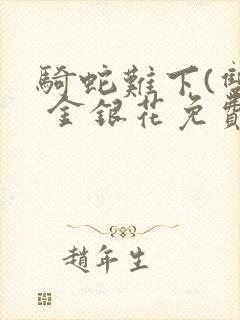 騎蛇難下(雙
金銀花免費
趙年生